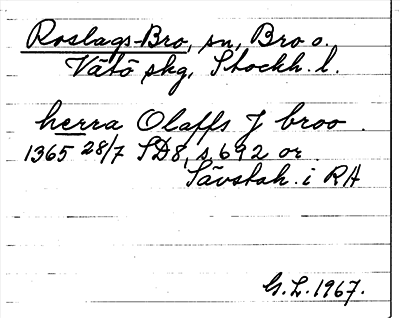 Roslags-Bro, sn, Bro o.
Vätö skg, Stockh. l.
herra Olaffs J broo.
1365 28/7 SD8, s, 692 or.
Sävstah. i RA
G.L. 1967.